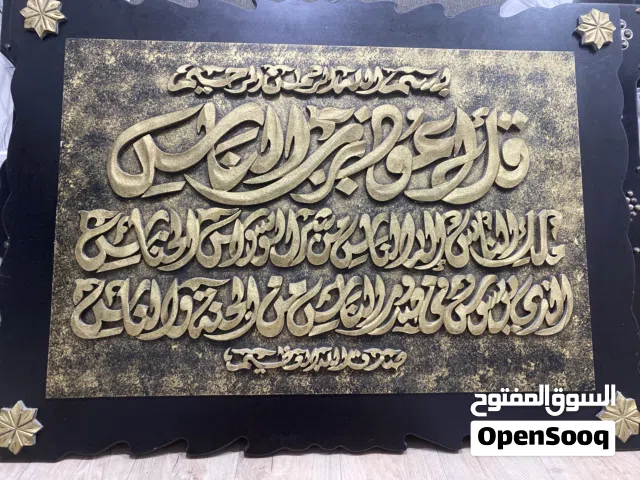 بسم الله الرحمن الرحيم
قل أعوذ برب الناس
ملك الناس إله الناس من شر الوسواس الخناس
الذي يوسوس في صدور الناس من الجنة والناس
صدق الله العظيم
السوق المفتوح
OpenSooq